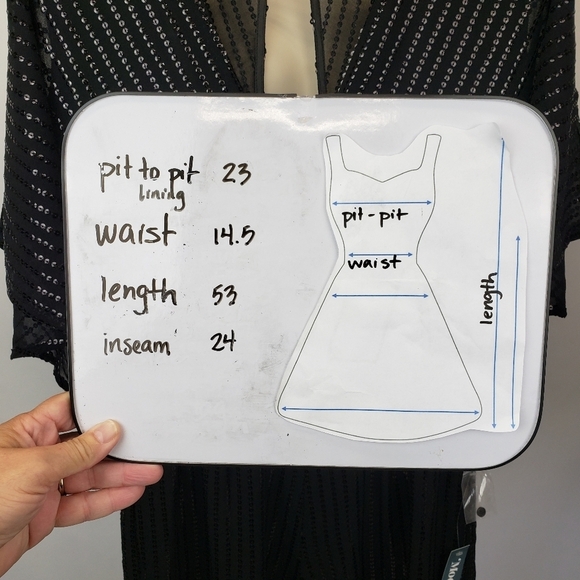 pit to pit 23
lining
waist 14.5
length 53
inseam 24
pit-pit
waist
length